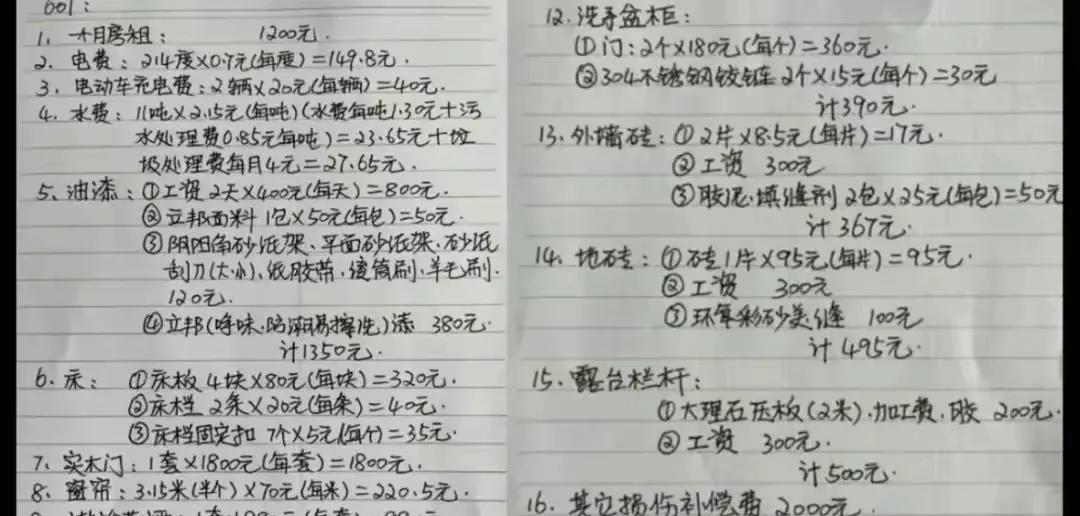 001:
1、一个月房租: 1200元.
2. 电费: 214度×0.7元(每度)=149.8元.
3. 电动车充电费: 2辆×20元(每辆)=40元.
4. 水费: 11吨×2.15元(每吨)(水费每吨1.30元+污
水处理费0.85元每吨)=23.65元+垃
圾处理费每月4元=27.65元.
5、油漆: ①工资 2天×400元(每天)=800元.
②立邦面料 1包×50元(每包)=50元.
③阴阳角砂纸架、平面砂纸架、砂纸
刮刀(大小)、纸胶带、滚筒刷、羊毛刷.
120元.
④立邦(净味.防潮易擦洗)漆 380元.
计1350元.
6. 床: ①床板 4块×80元(每块)=320元.
②床栏 2条×20元(每条)=40元.
③床栏固定扣 7个×5元(每个)=35元.
7、实木门: 1套×1800元(每套)=1800元.
8. 窗帘: 3.15米(半个)×70元(每米)=220.5元.
12. 洗手盆柜:
①门: 2个×180元(每个)=360元.
②304不锈钢铰链 2个×15元(每个)=30元
计390元.
13. 外墙砖: ①2片×8.5元(每片)=17元.
②工资 300元
③胶泥.填缝剂 2包×25元(每包)=50元
计367元.
14. 地砖: ①砖1片×95元(每片)=95元.
②工资 300元
③环氧彩砂美缝 100元
计495元.
15. 露台栏杆:
①大理石压板(2米).加工费.胶 200元.
②工资 300元.
计500元.
16. 其它损伤补偿费 2000元.